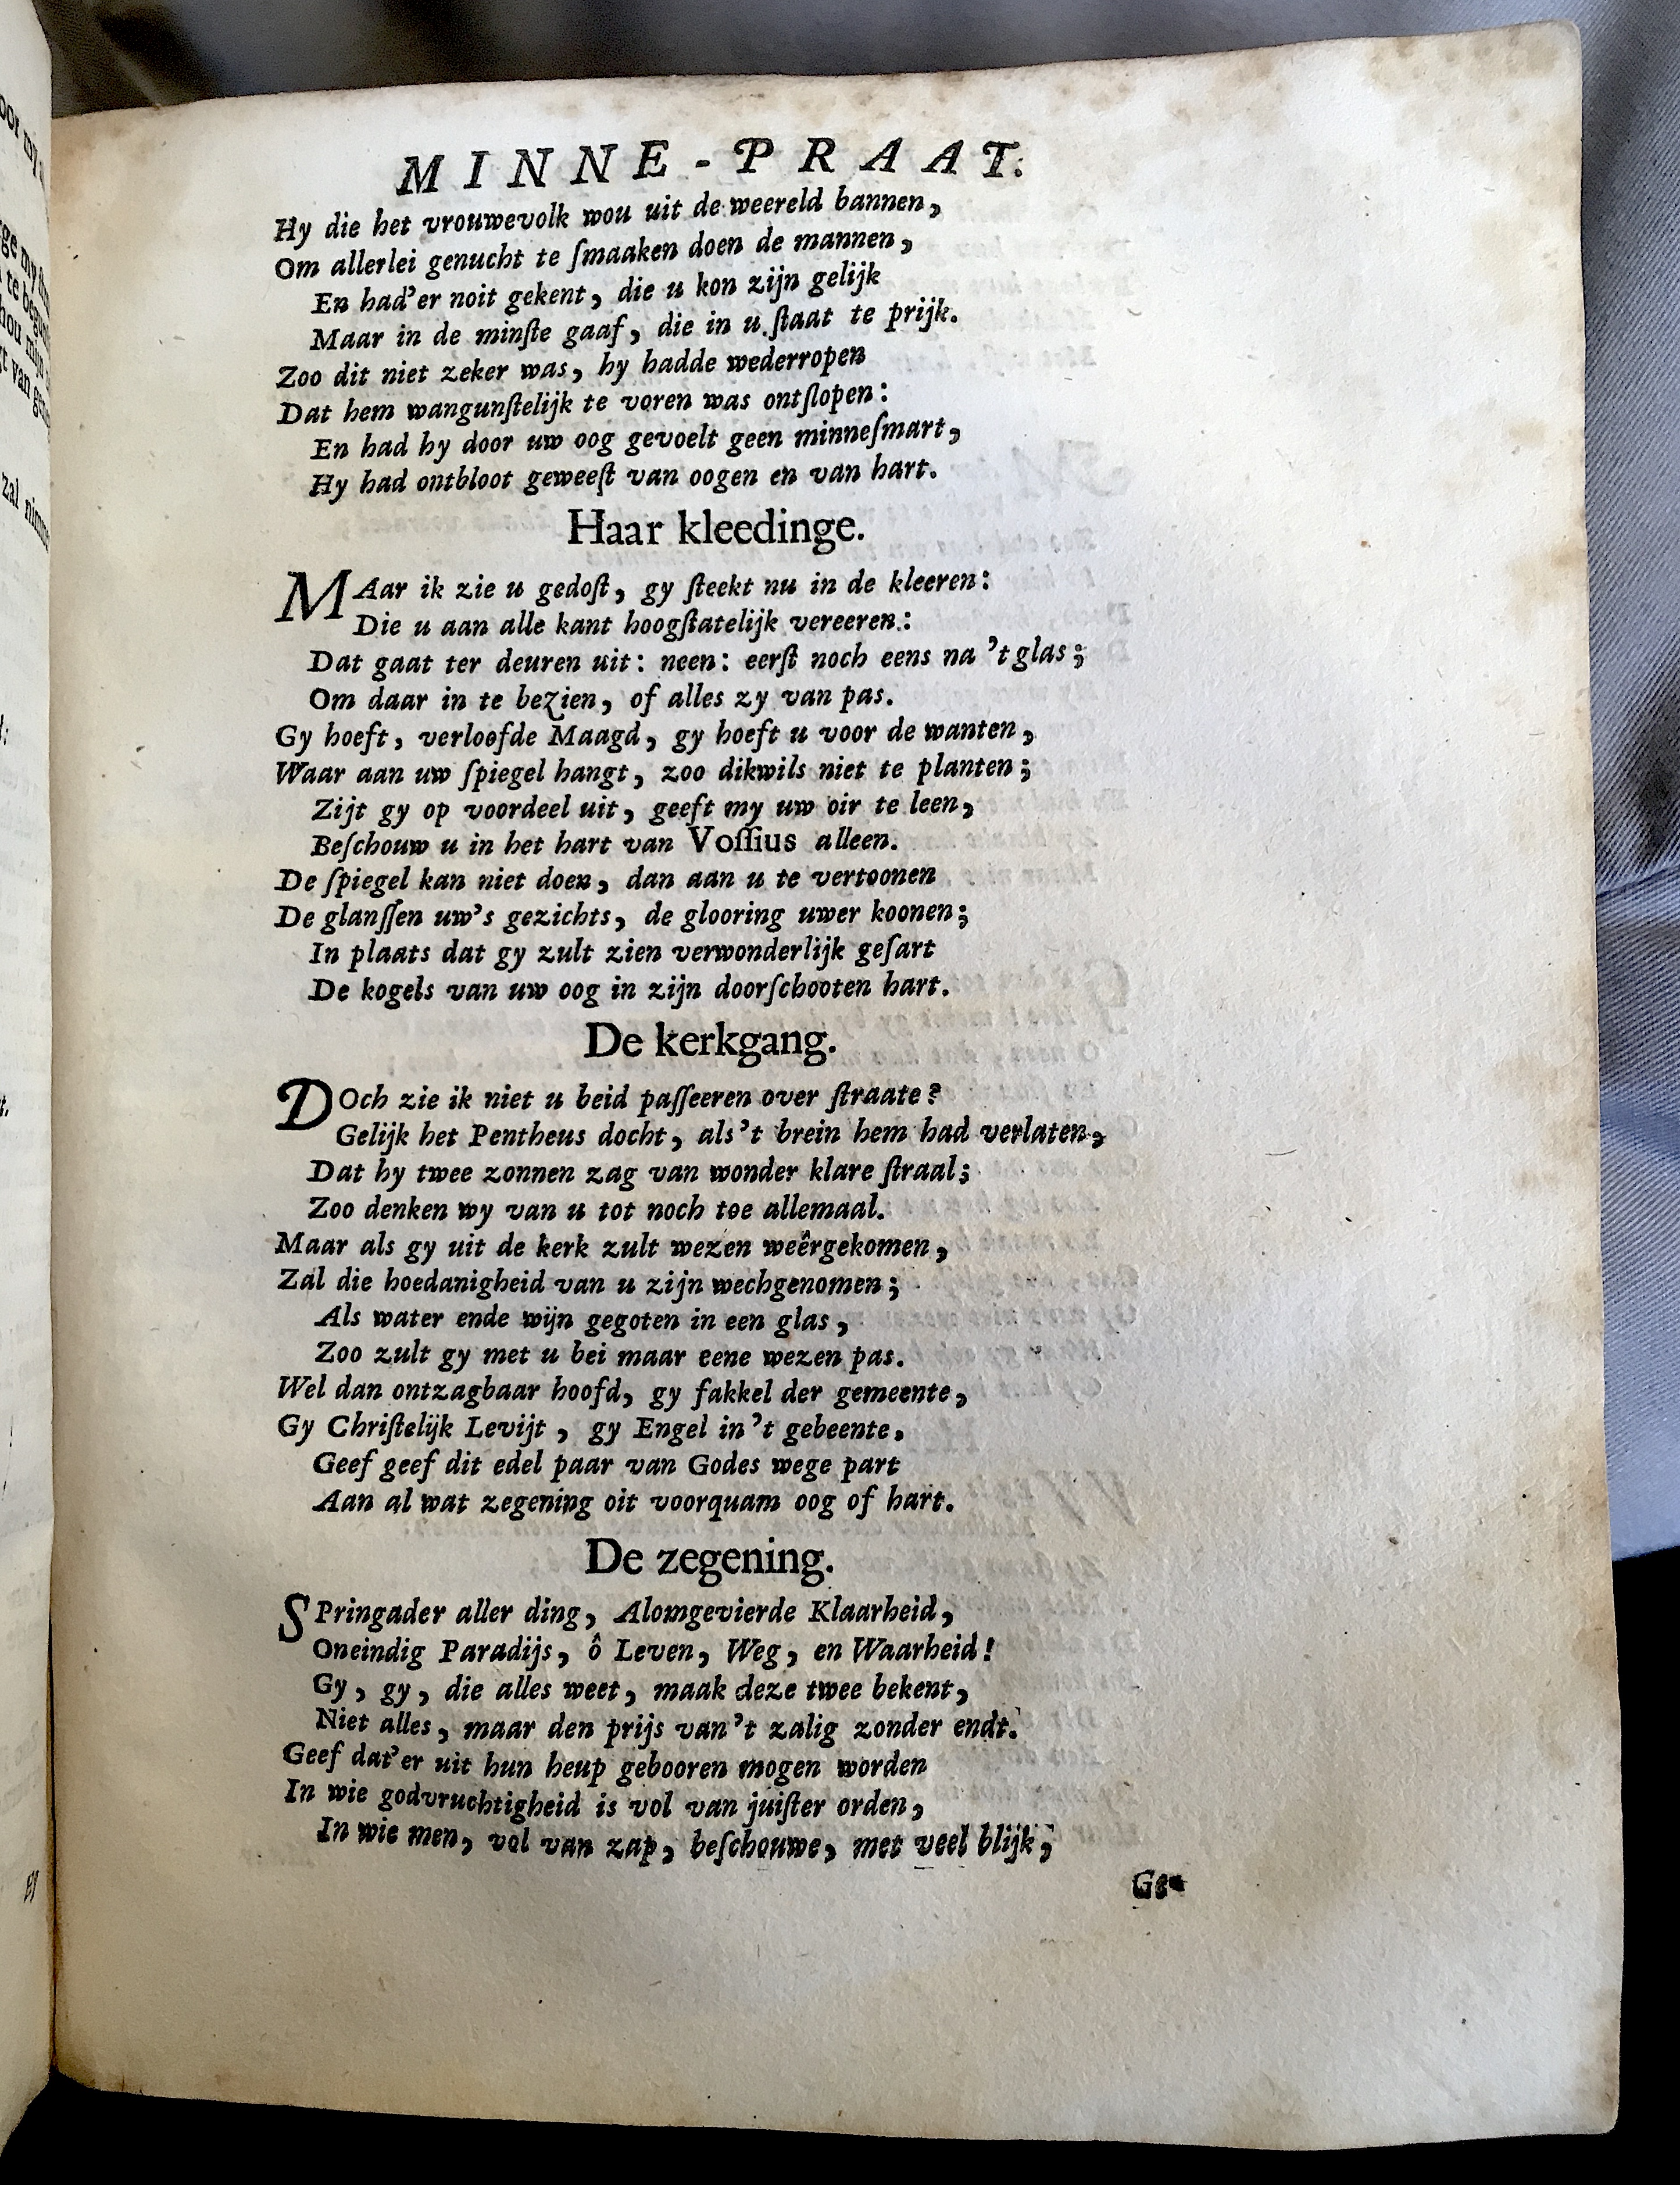 MINNE-PRAAT.
Hy die het vrouwevolk wou uit de weereld bannen,
Om allerlei genucht te ſmaaken doen de mannen,
En had'er noit gekent, die u kon zijn gelijk
Maar in de minſte gaaf, die in u ſtaat te prijk.
Zoo dit niet zeker was, hy hadde wederropen
Dat hem wangunſtelijk te voren was ontſlopen:
En had hy door uw oog gevoelt geen minneſmart,
Hy had ontbloot geweeſt van oogen en van hart.
Haar kleedinge.
MAar ik zie u gedoſt, gy ſteekt nu in de kleeren:
Die u aan alle kant hoogſtatelijk vereeren:
Dat gaat ter deuren uit: neen: eerſt noch eens na 't glas;
Om daar in te bezien, of alles zy van pas.
Gy hoeft, verloofde Maagd, gy hoeft u voor de wanten,
Waar aan uw ſpiegel hangt, zoo dikwils niet te planten;
Zijt gy op voordeel uit, geeft my uw oir te leen,
Beſchouw u in het hart van Voſſius alleen.
De ſpiegel kan niet doen, dan aan u te vertoonen
De glanſſen uw's gezichts, de glooring uwer koonen;
In plaats dat gy zult zien verwonderlijk geſart
De kogels van uw oog in zijn doorſchooten hart.
De kerkgang.
DOch zie ik niet u beid paſſeeren over ſtraate?
Gelijk het Pentheus docht, als't brein hem had verlaten,
Dat hy twee zonnen zag van wonder klare ſtraal;
Zoo denken wy van u tot noch toe allemaal.
Maar als gy uit de kerk zult wezen weêrgekomen,
Zal die hoedanigheid van u zijn wechgenomen;
Als water ende wijn gegoten in een glas,
Zoo zult gy met u bei maar eene wezen pas.
Wel dan ontzagbaar hoofd, gy fakkel der gemeente,
Gy Chriſtelijk Levijt, gy Engel in't gebeente,
Geef geef dit edel paar van Godes wege part
Aan al wat zegening oit voorquam oog of hart.
De zegening.
SPringader aller ding, Alomgevierde Klaarheid,
Oneindig Paradijs, ô Leven, Weg, en Waarheid!
Gy, gy, die alles weet, maak deze twee bekent,
Niet alles, maar den prijs van't zalig zonder endt.
Geef dat'er uit hun heup gebooren mogen worden
In wie godvruchtigheid is vol van juiſter orden,
In wie men, vol van zap, beſchouwe, met veel blijk,
Ge-